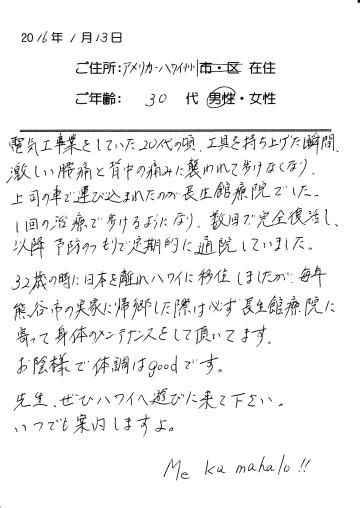 2016年 1月13日
ご住所:アメリカ・ハワイ州 市・区 在住
ご年齢: 30 代 男性・女性
電気工事業をしていた20代の頃、工具を持ち上げた瞬間、
激しい腰痛と背中の痛みに襲われて歩けなくなり、
上司の車で運び込まれたのが長生館療院でした。
1回の治療で歩けるようになり、数回で完全復活し、
以降 予防のつもりで定期的に通院していました。
32歳の時に日本を離れハワイに移住しましたが、毎年
熊谷市の実家に帰郷した際は必ず長生館療院に
寄って身体のメンテナンスをして頂いてます。
お陰様で体調はgoodです。
先生、ぜひハワイへ遊びに来て下さい。
いつでも案内しますよ。
Me ka mahalo!!